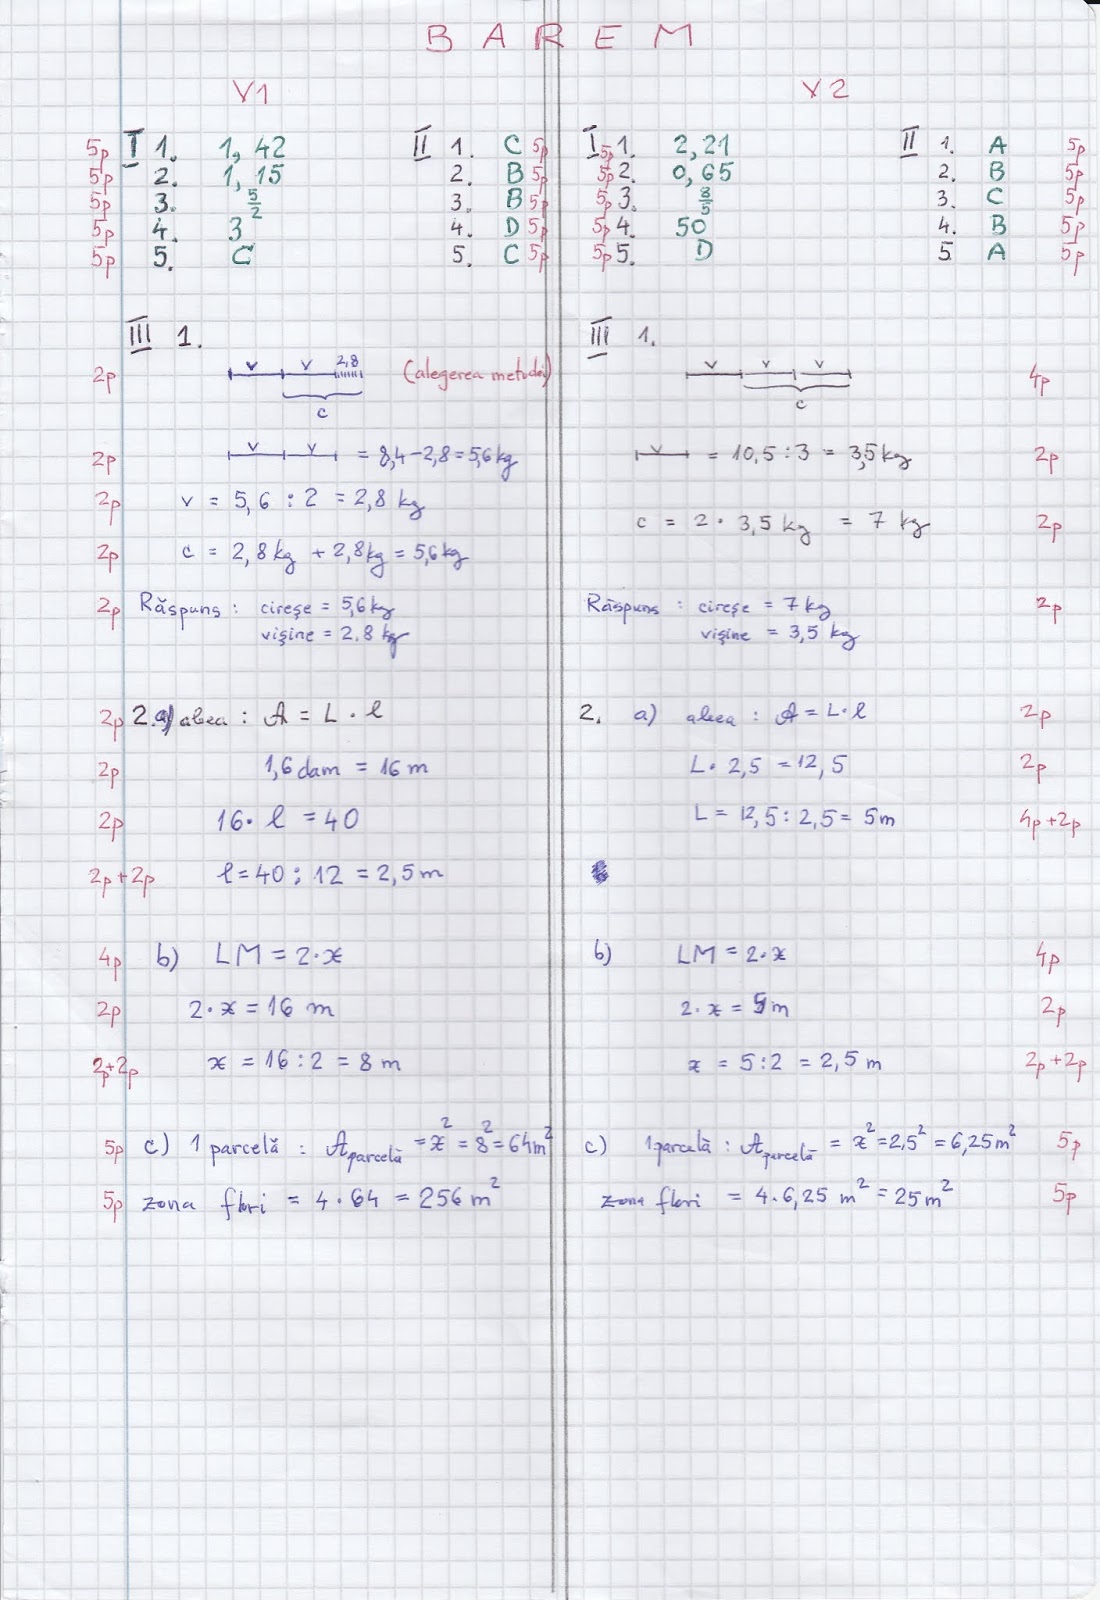 BAREM
V1
5p I 1. 1,42 II 1. C 5p
5p 2. 1,15 2. B 5p
5p 3. 5/2 3. B 5p
5p 4. 3 4. D 5p
5p 5. C 5. C 5p
III 1.
2p v v 2,8 (alegerea metodei)
c
2p v v = 8,4-2,8=5,6kg
2p v = 5,6 : 2 = 2,8 kg
2p c = 2,8kg + 2,8kg = 5,6kg
2p Răspuns : cireșe = 5,6kg
vișine = 2,8 kg
2p 2.a) aleea : A = L · l
2p 1,6 dam = 16 m
2p 16 · l = 40
2p+2p l=40 : 12 = 2,5m
4p b) LM = 2·x
2p 2·x = 16 m
2p+2p x = 16:2 = 8 m
5p c) 1 parcelă : A parcelă = x² = 8² = 64m²
5p zona flori = 4·64 = 256 m²
V2
I 5p 1. 2,21 II 1. A 5p
5p 2. 0,65 2. B 5p
5p 3. 8/5 3. C 5p
5p 4. 50 4. B 5p
5p 5. D 5 A 5p
III 1.
v v v 4p
c
v = 10,5:3 = 3,5kg 2p
c = 2 · 3,5 kg = 7 kg 2p
Răspuns : cireșe = 7 kg 2p
vișine = 3,5 kg
2. a) aleea : A = L·l 2p
L· 2,5 = 12,5 2p
L = 12,5 : 2,5 = 5m 4p+2p
b) LM = 2·x 4p
2·x = 5m 2p
x = 5:2 = 2,5 m 2p+2p
c) 1parcelă : A parcelă = x² = 2,5² = 6,25m² 5p
zona flori = 4·6,25 m² = 25m² 5p